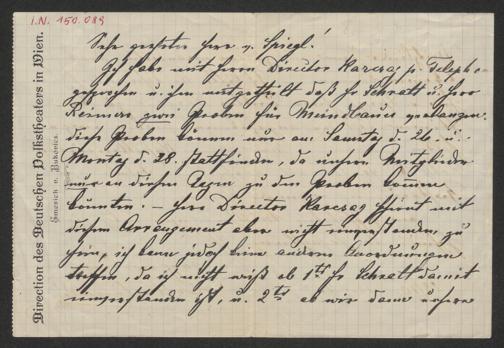 I.N. 150.089
Direction des Deutschen Volkstheaters in Wien.
Emerich v. Bukovics.
Sehr geehrter Herr v. Spiegl!
Ich habe mit Herrn Director Karczag p. Telepho
gesprochen u. ihm mitgetheilt daß Fr Schratt u. Herr
Reimers zwei Proben für Meindlbauer verlangen.
diese Proben können nur am Samstag d. 26. u.
Montag d. 28. stattfinden, da unsere Mitglieder
nur an diesen Tagen zu den Proben kommen
könnten. – Herr Director Karczag scheint mit
diesem Arrangement aber nicht einverstanden zu
sein, ich kann jedoch keine anderen Anordnungen
treffen, da ich nicht weiß ob 1tens Fr Schratt damit
einverstanden ist, u. 2tens ob wir dann unsere